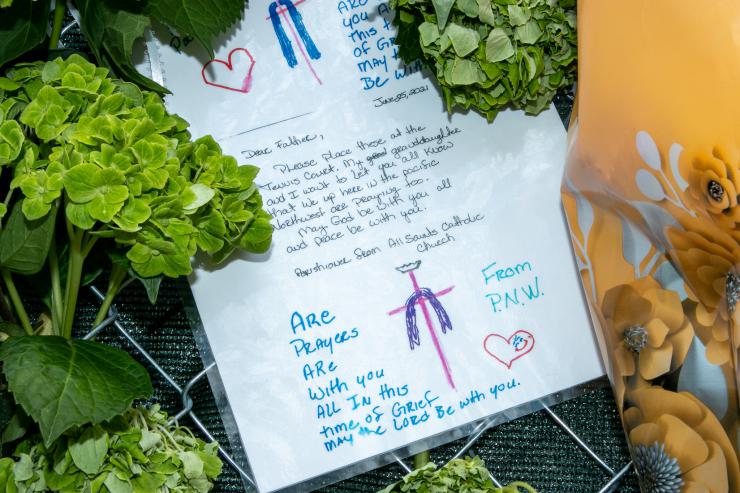 ARE
YOU A
THIS t
OF Grief
MAY t
Be with
June 25, 2021
Dear Father,
Please Place these at the
Tennis Court. My granddaughter
and I want to let you all know
that we up here in the pacific
Northwest are praying too.
May God be with you all
and peace be with you.
Parishioner from All Saints Catholic
Church
From
P.N.W.
ARe
PRAYeRs
ARe
With you
ALL IN this
time OF GRIeF
MAY the LORD Be with you.